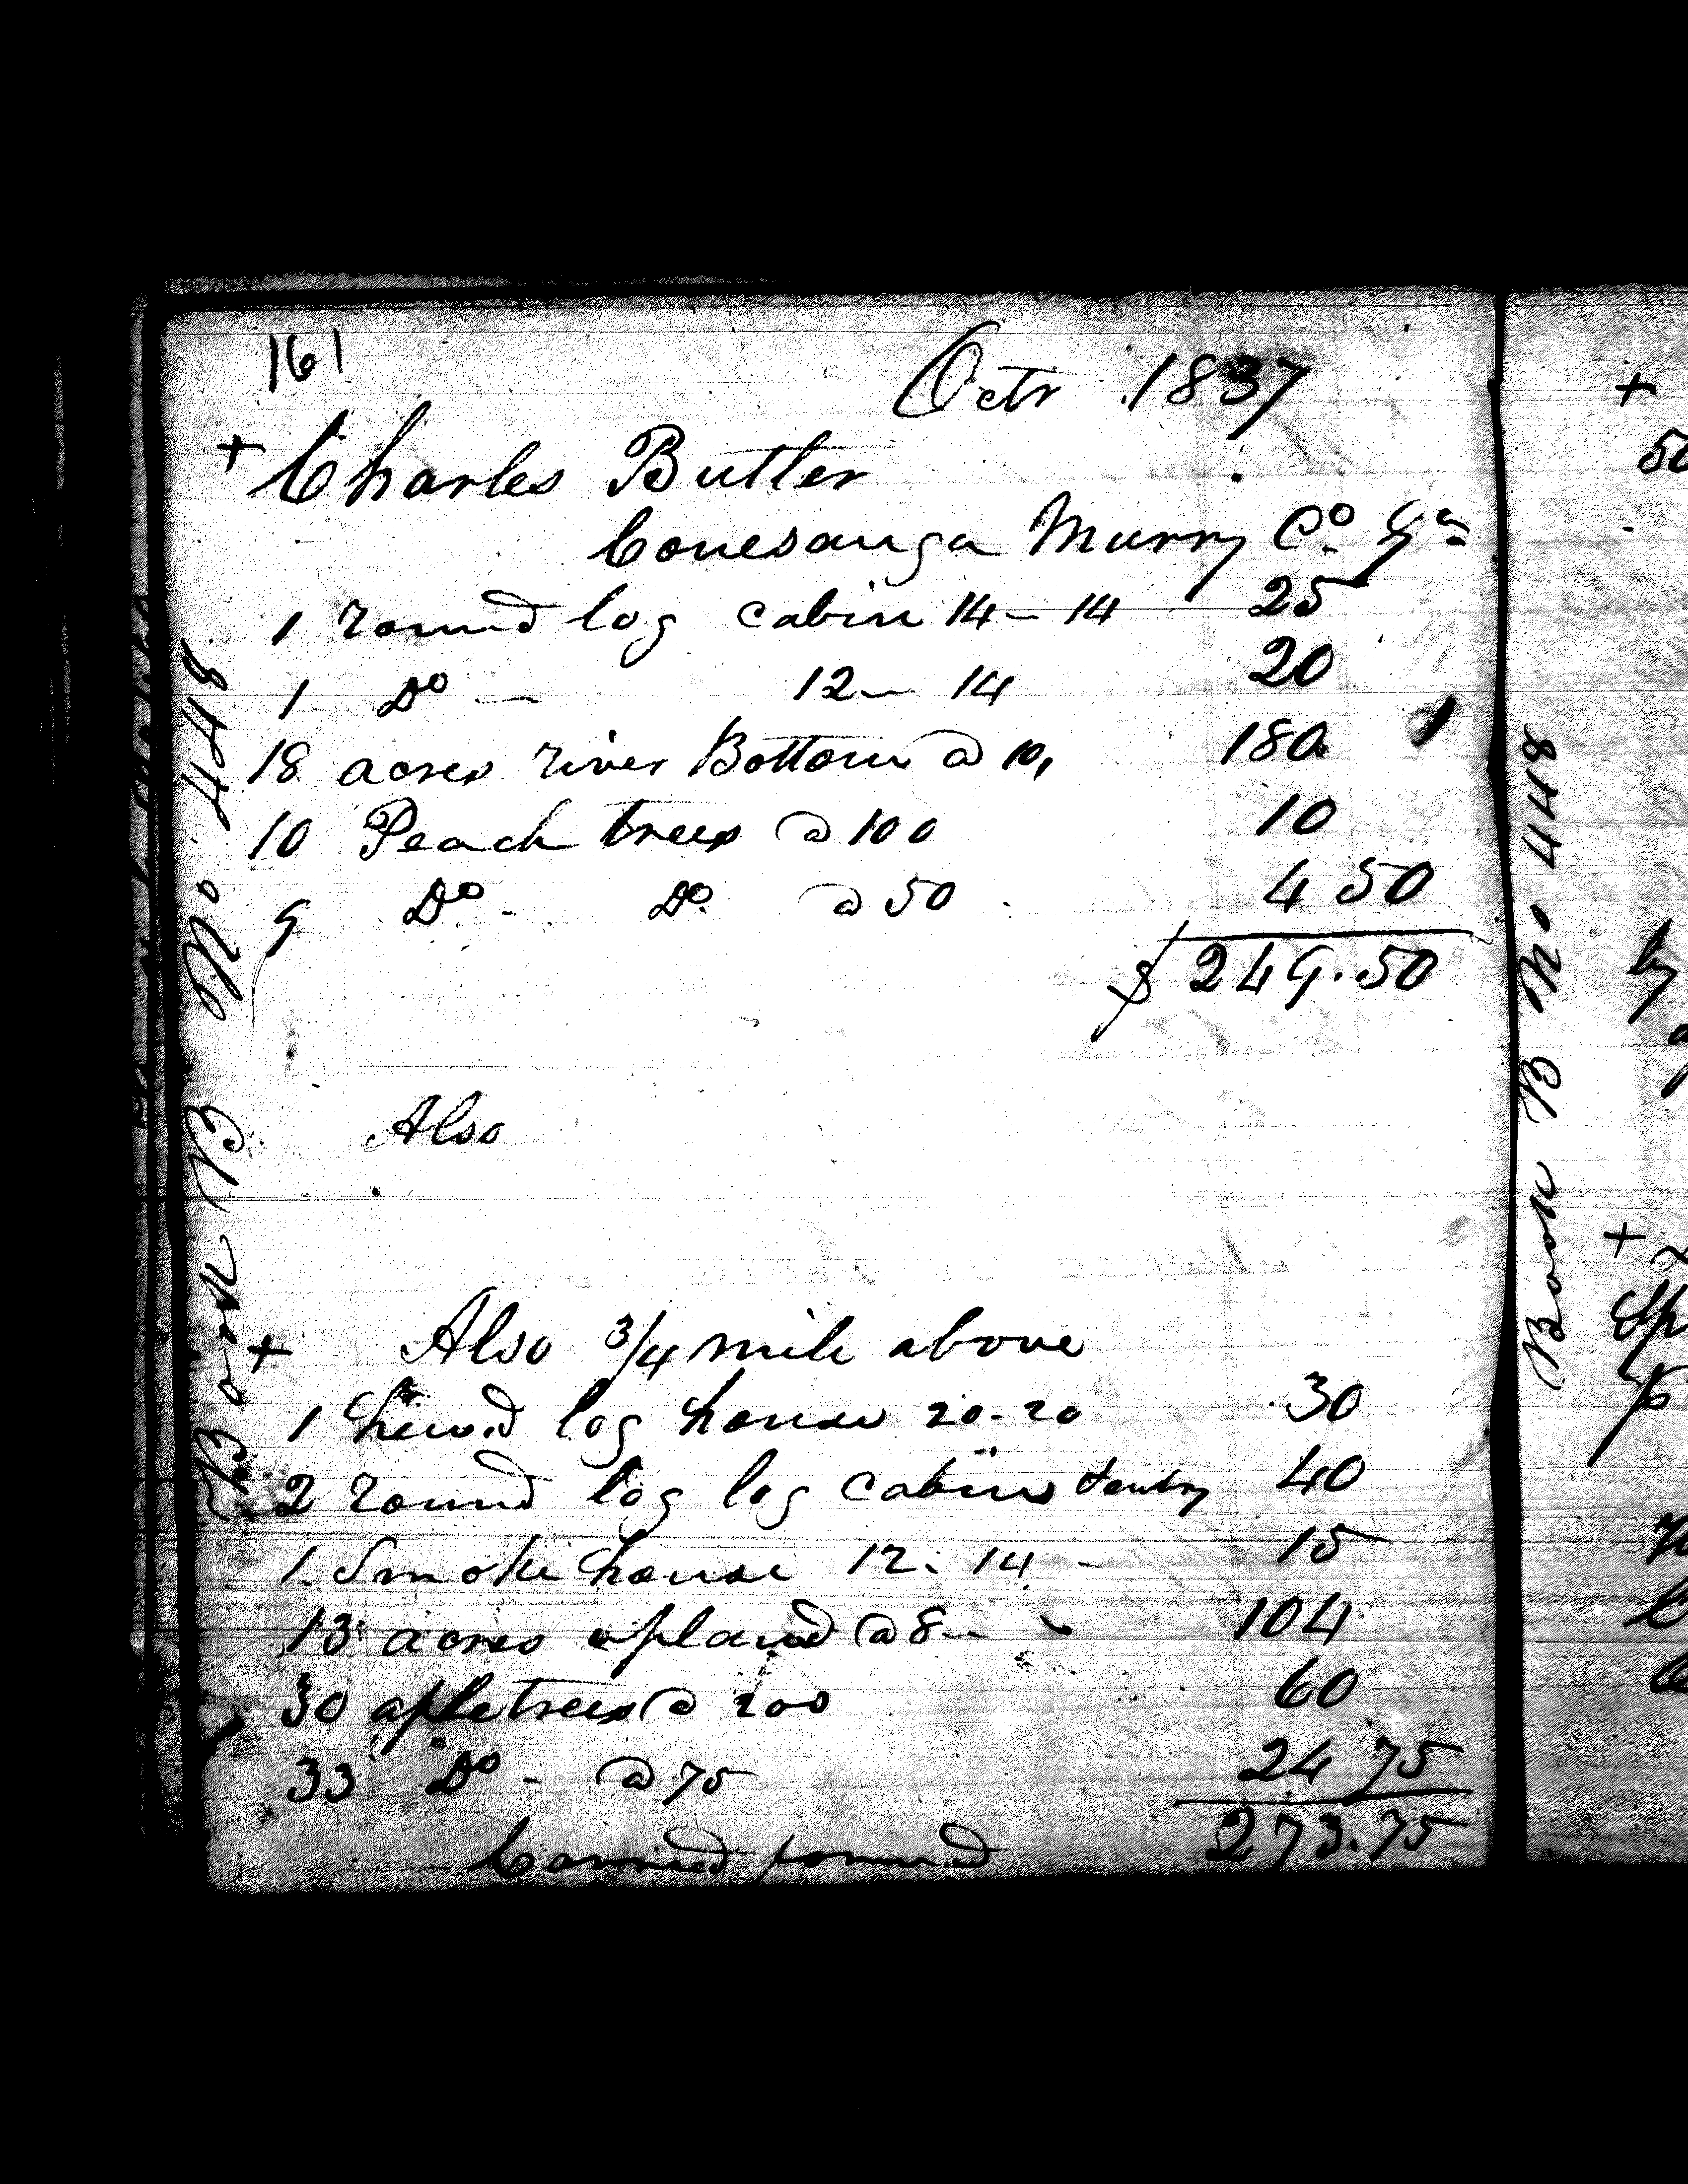 161
Octr 1837
+ Charles Butler
Conesauga Murry Co. Ga
1 round log cabin 14 - 14 25
1 Do - 12 - 14 20
18 acres river Bottom @ 10, 180
10 Peach trees @ 100 10
9 Do - Do. @ 50 4 50
$ 249.50
Also
+ Also 3/4 mile above
1 hew.d log house 20-20 30
2 round log log cabins 40
1. Smoke house 12. 14 - 15
13 acres upland @ 8 - 104
30 aple trees @ 200 60
33 Do - @ 75 24 75
Carried forward 273.75
Book B No 448
Book B No 448
+
50
by
+